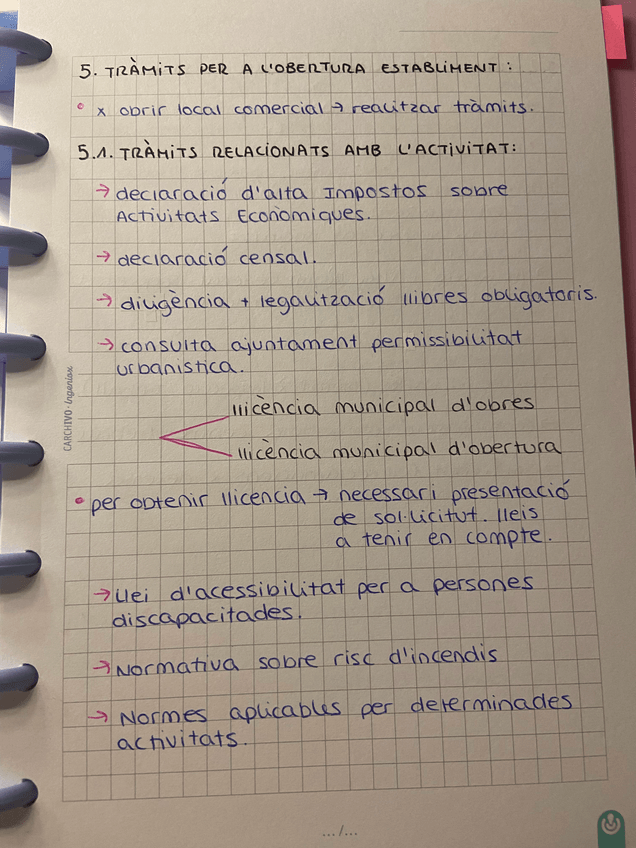 5. TRÀMITS PER A L'OBERTURA ESTABLIMENT :
• x obrir local comercial → realitzar tràmits.
5.1. TRÀMITS RELACIONATS AMB L'ACTIVITAT:
→ declaració d'alta Impostos sobre
Activitats Econòmiques.
→ declaració censal.
→ diligència + legalització llibres obligatoris.
→ consulta ajuntament permissibilitat
urbanistica.
llicència municipal d'obres
llicència municipal d'obertura
• per obtenir llicencia → necessari presentació
de sol·licitut. lleis
a tenir en compte.
→ Llei d'acessibilitat per a persones
discapacitades.
→ Normativa sobre risc d'incendis
→ Normes aplicables per determinades
activitats.
CARCHIVO · Ingeniox
.../...